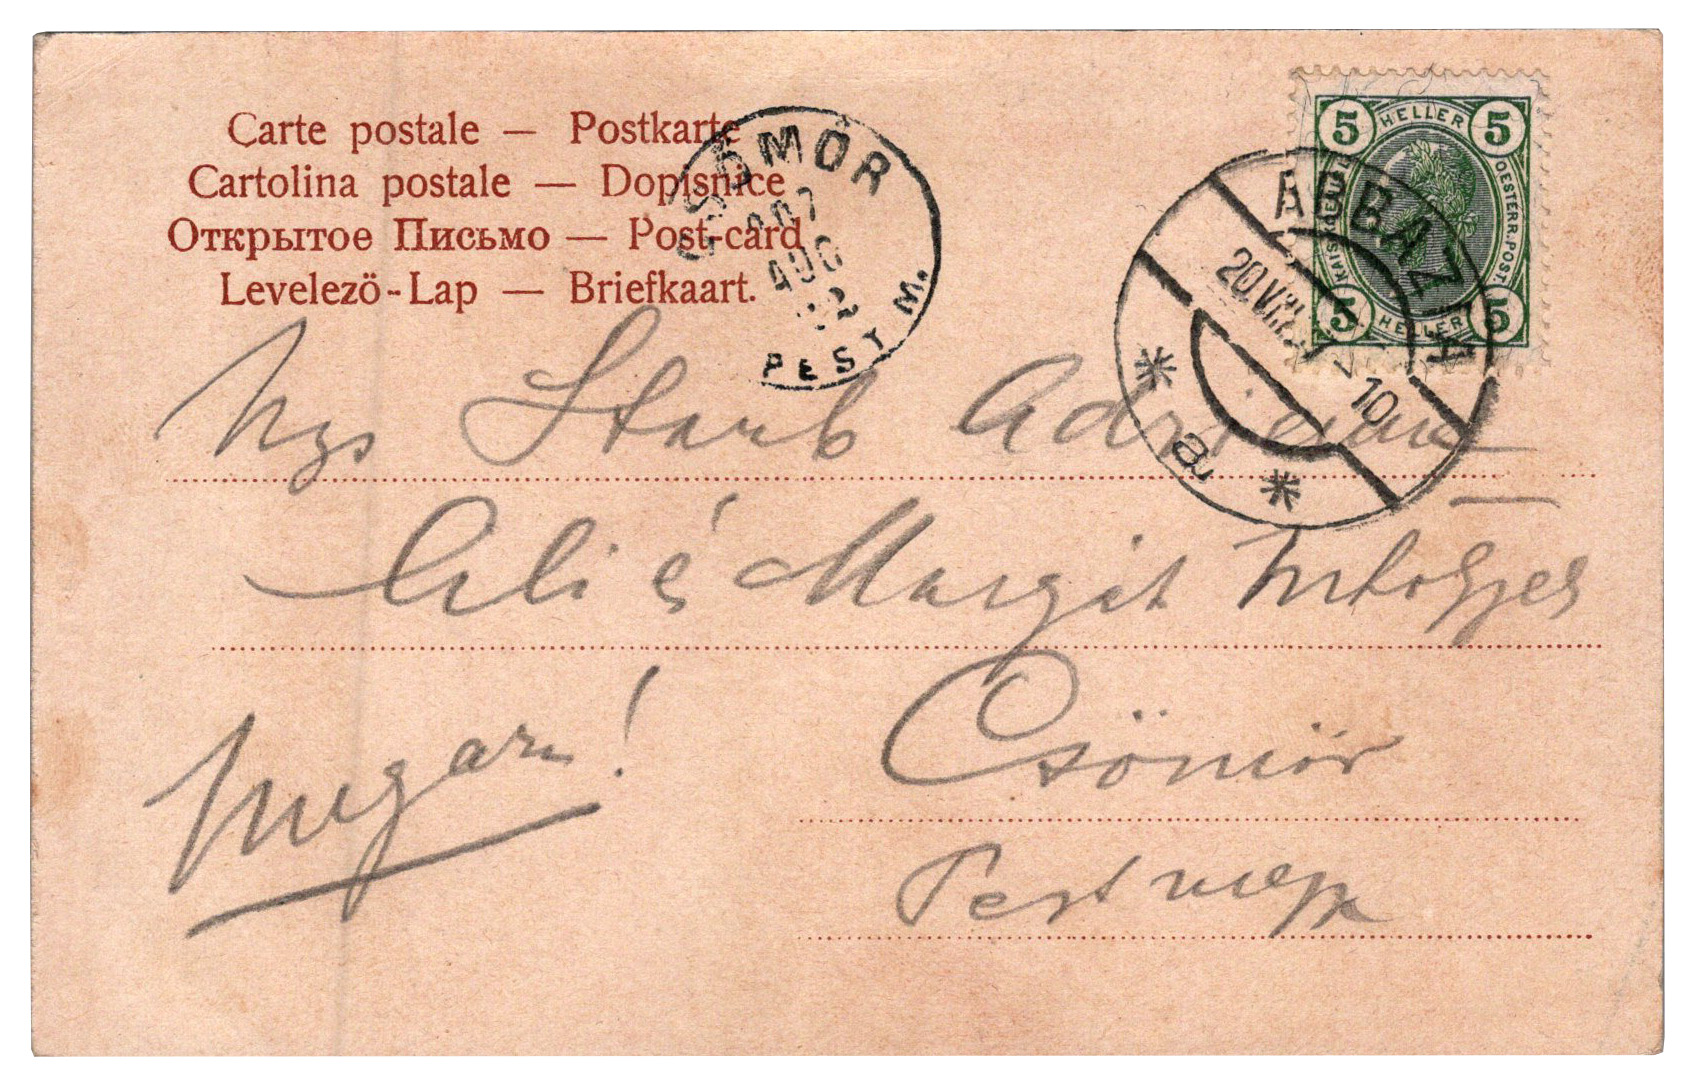 Carte postale — Postkarte
Cartolina postale — Dopisnice
Открытое Письмо — Post-card
Levelező-Lap — Briefkaart.
CSÖMÖR
907
AUG
22
PEST M.
5 HELLER 5
KAIS. KÖN.
OESTERR. POST.
5 HELLER 5
ABBAZIA
20.VIII
10
* a *
Ngs Staub
Lili é Margit
Csömör
Pest megye
Ungarn!